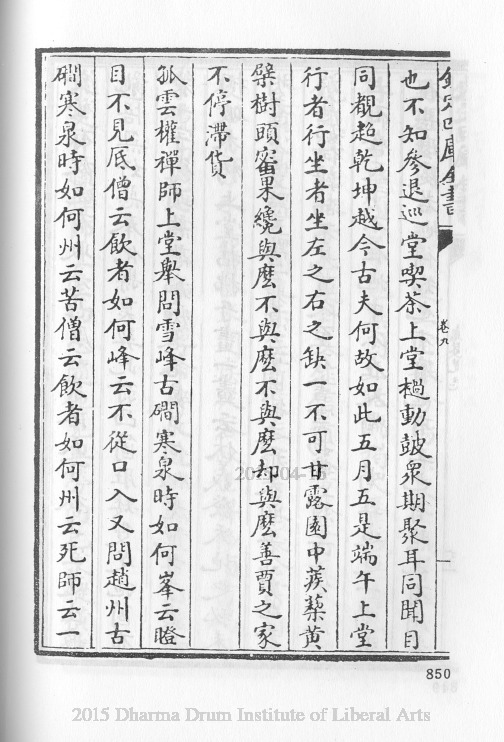 欽定四庫全書
卷九
也不知參退巡堂喫茶上堂檛動鼓衆期聚耳同聞目
同觀超乾坤越今古夫何故如此五月五是端午上堂
行者行坐者坐左之右之缺一不可甘露園中蒺藜黄
櫱樹頭蜜果纔與麽不與麽不與麽却與麽善賈之家
不停滯貨
孤雲權禪師上堂舉問雪峰古磵寒泉時如何峯云瞪
目不見底僧云飲者如何峰云不從口入又問趙州古
磵寒泉時如何州云苦僧云飲者如何州云死師云一
850
2015 Dharma Drum Institute of Liberal Arts